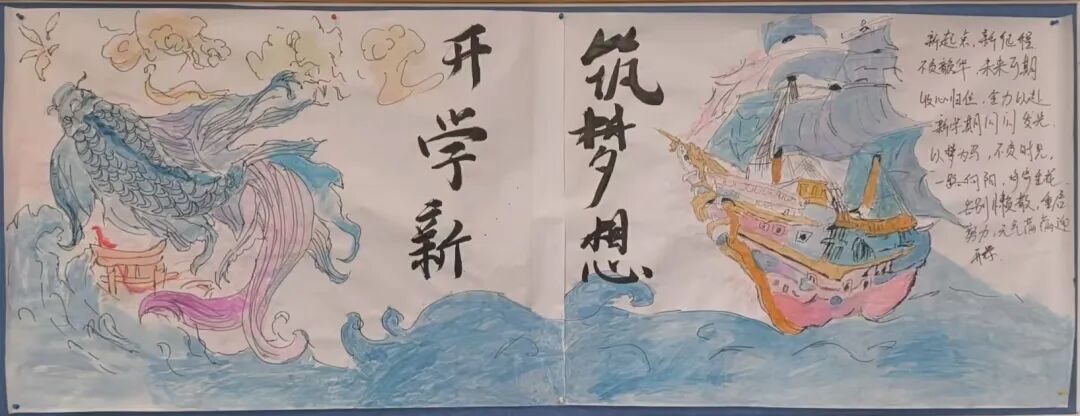 开学新
筑梦想
新起点，新征程
不负韶华，未来可期
收心归位，全力以赴
新学期闪闪发光
以梦为马，不负时光，
一路向阳，步步生花
告别懒散，重启
努力，元气满满迎
开学.